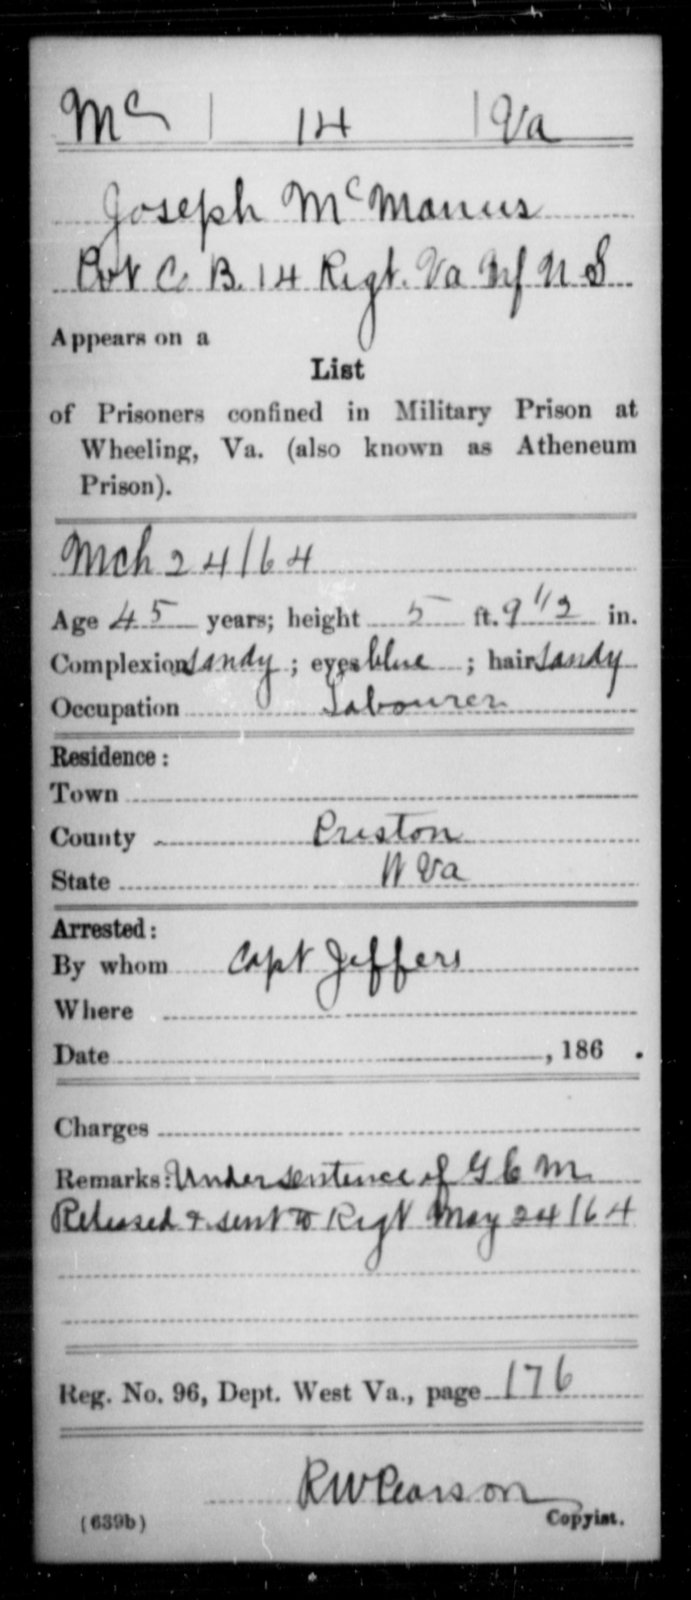 Mc | 14 | Va
Joseph McManus
Pvt Co B. 14 Regt. Va Inf U S
Appears on a
List
of Prisoners confined in Military Prison at
Wheeling, Va. (also known as Atheneum
Prison).
Mch 24/64
Age 45 years; height 5 ft. 9 1/2 in.
Complexion Sandy ; eyes blue ; hair Sandy
Occupation Labourer
Residence:
Town
County Preston
State W Va
Arrested:
By whom Capt Jeffers
Where
Date , 186 .
Charges
Remarks: Under sentence of G C M
Released & sent to Regt May 24/64
Reg. No. 96, Dept. West Va., page 176
RW Pearson
(639b) Copyist.